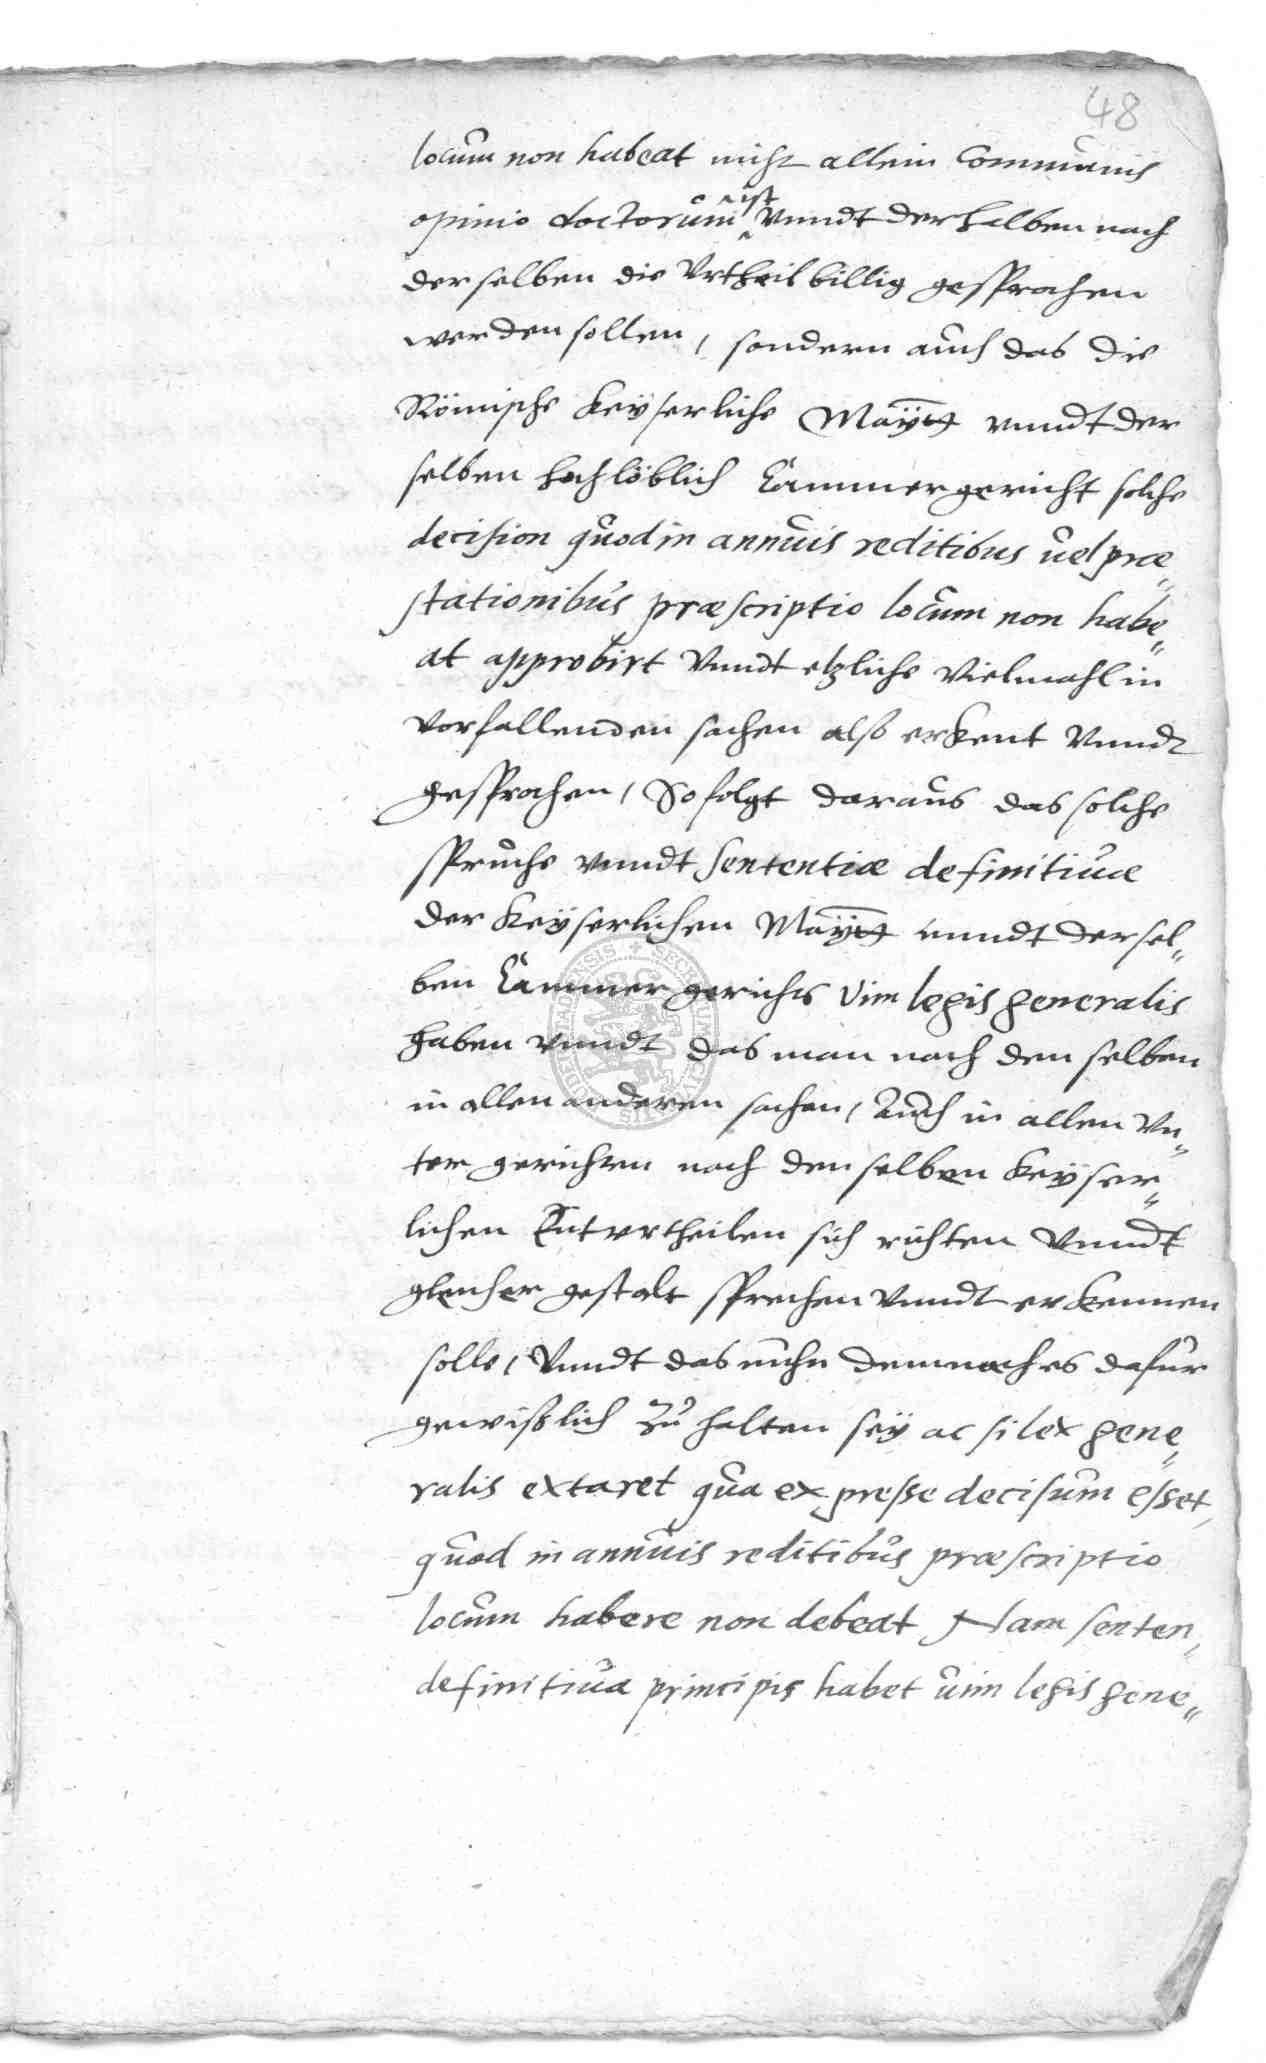 48
locum non habeat nicht allein Communis
opinio doctorum ist vnndt derhalben nach
derselben die Vrtheil billig gesprochen
werden sollen, sondern auch das die
Römische Keyserliche Maÿtt vnndt der
selben hochlöblich Cammergericht solche
decision quod in annuis reditibus uel prae„
stationibus praescriptio locum non habe„
at approbirt Vnndt etzliche Vielmahl in
vorfallenden sachen also erkent Vnndt
gesprochen, So folgt daraus das solche
spruche vnndt sententiae definitiuae
der Keÿserlichen Maÿtt vnndt dersel„
ben Cammergerichts Vim legis generalis
haben vnndt das man nach den selben
in allen anderen sachen, Auch in allen Vn„
ter gerichten nach den selben Keÿser„
lichen Entvrtheilen sich richten Vnndt
gleicher gestalt sprechen Vnndt erkennen
solle, Vnndt das nuhn demnach es dafur
gewißlich Zu halten seÿ ac si lex gene„
ralis extaret qua expresse decisum esset,
quod in annuis reditibus praescriptio
locum habere non debeat Nam senten„
definitiua principis habet uim legis gene„
SECRETUM CIVI